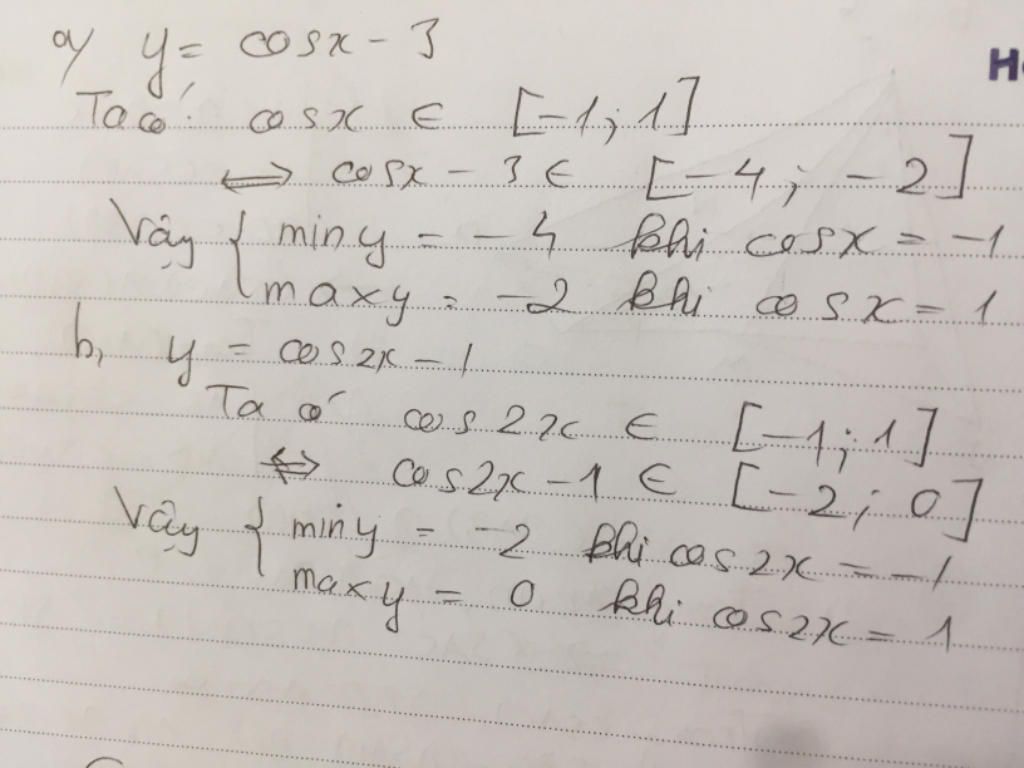 a) y = cosx - 3
Ta có: cosx ∈ [-1; 1]
⇔ cosx - 3 ∈ [-4; -2]
Vậy { min y = -4 khi cosx = -1
max y = -2 khi cosx = 1
b, y = cos2x - 1
Ta có cos2x ∈ [-1; 1]
⇔ cos2x - 1 ∈ [-2; 0]
Vậy { min y = -2 khi cos2x = -1
max y = 0 khi cos2x = 1